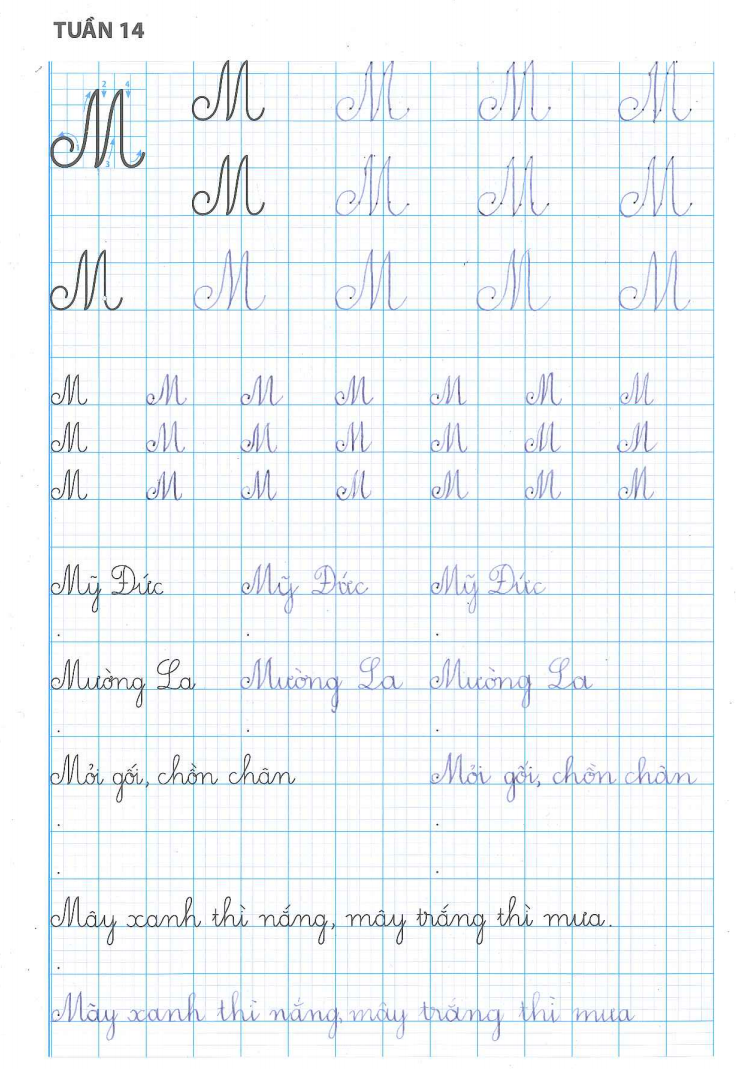 TUẦN 14
2 4
1
3
M M M M M
M M M M
M M M M M
M M M M M M M
M M M M M M M
M M M M M M M
Mỹ Đức Mỹ Đức Mỹ Đức
Mường La Mường La Mường La
Mỏi gối, chồn chân Mỏi gối, chồn chân
Mây xanh thì nắng, mây trắng thì mưa.
Mây xanh thì nắng, mây trắng thì mưa